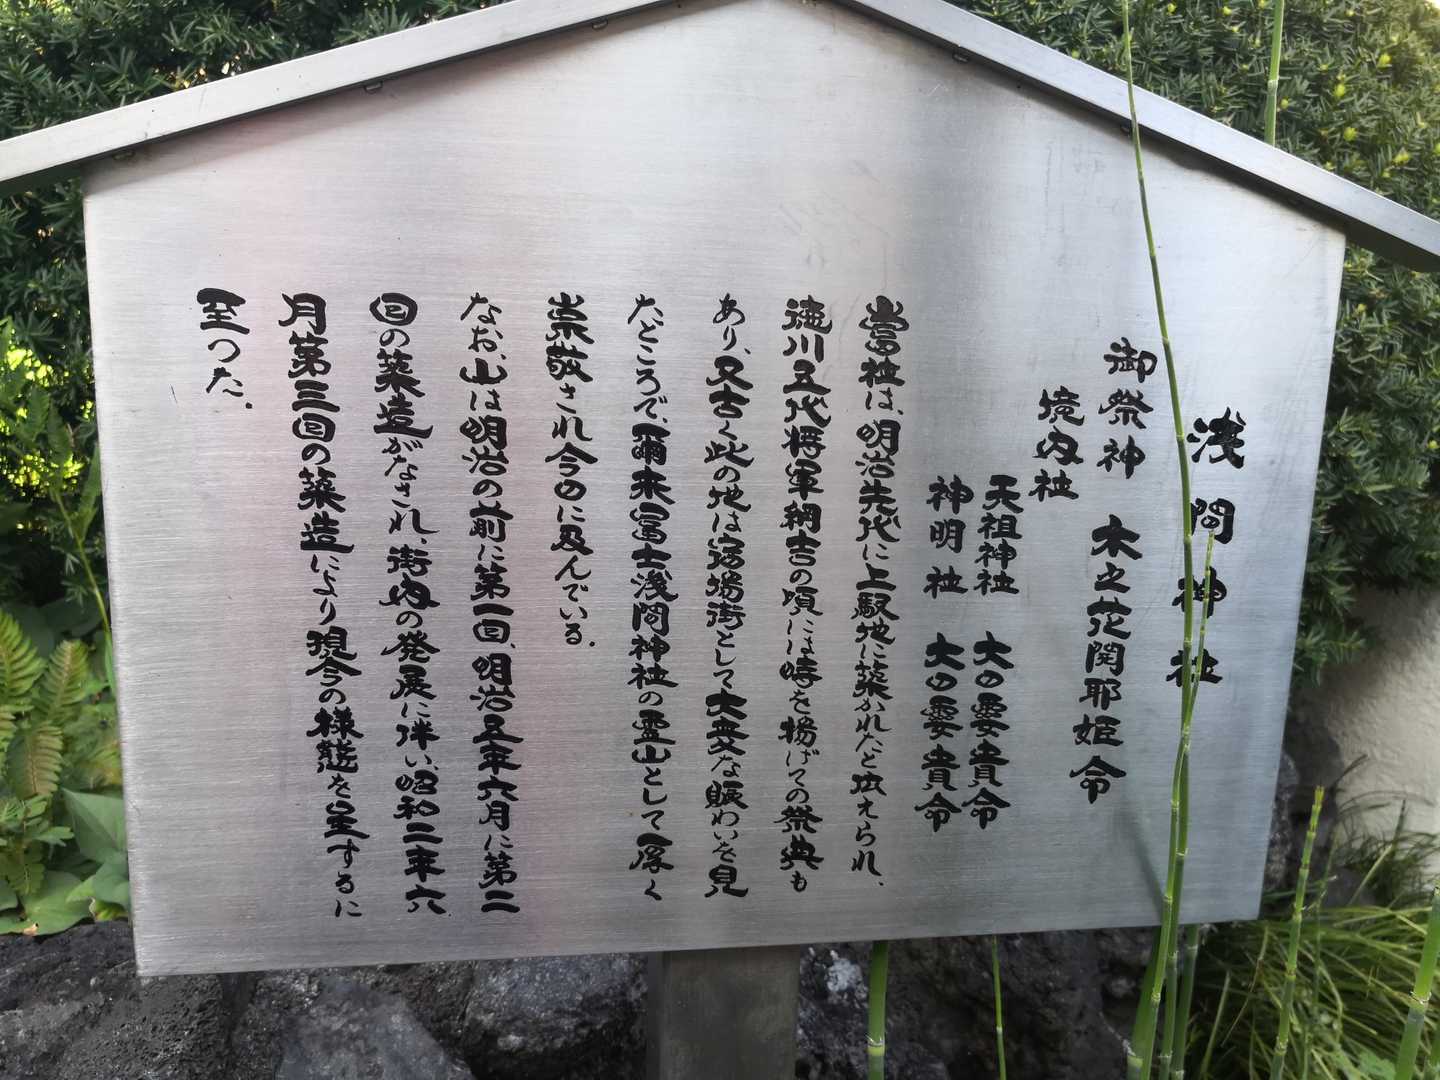 浅間神社
御祭神 木之花開耶姫命
境内社
天祖神社 大日孁貴命
神明社 大日孁貴命
當社は、明治先代に上駅地に築かれたと伝えられ、
徳川五代将軍綱吉の頃には時を揚げての祭典も
あり、又古く此の地は宿場街として大変な賑わいを見
たところで、爾来富士浅間神社の霊山として厚く
崇敬され今日に及んでいる.
なお、山は明治の前に第一回、明治五年六月に第二
回の築造がなされ、街内の発展に伴い、昭和二年六
月第三回の築造により現今の様態を呈するに
至つた.